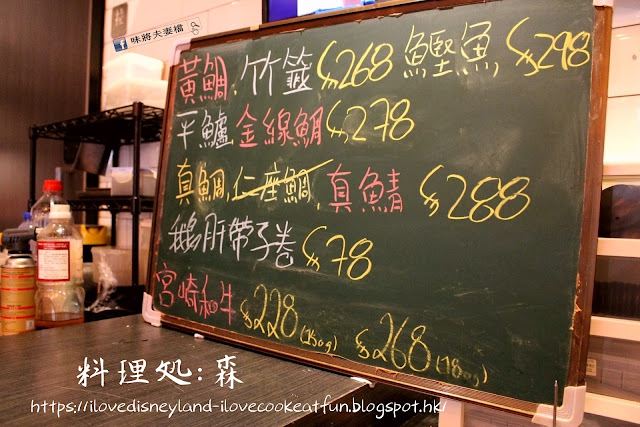 味將夫妻檔
黃鯛、竹籤 $268 鰹魚 $298
平鱸 金線鯛 $278
真鯛、仁座鯛、真鯖 $288
鵝肝帶子卷 $78
宮崎和牛 $228(150g) $268(180g)
料理処:森
https://ilovedisneyland-ilovecookeatfun.blogspot.hk/